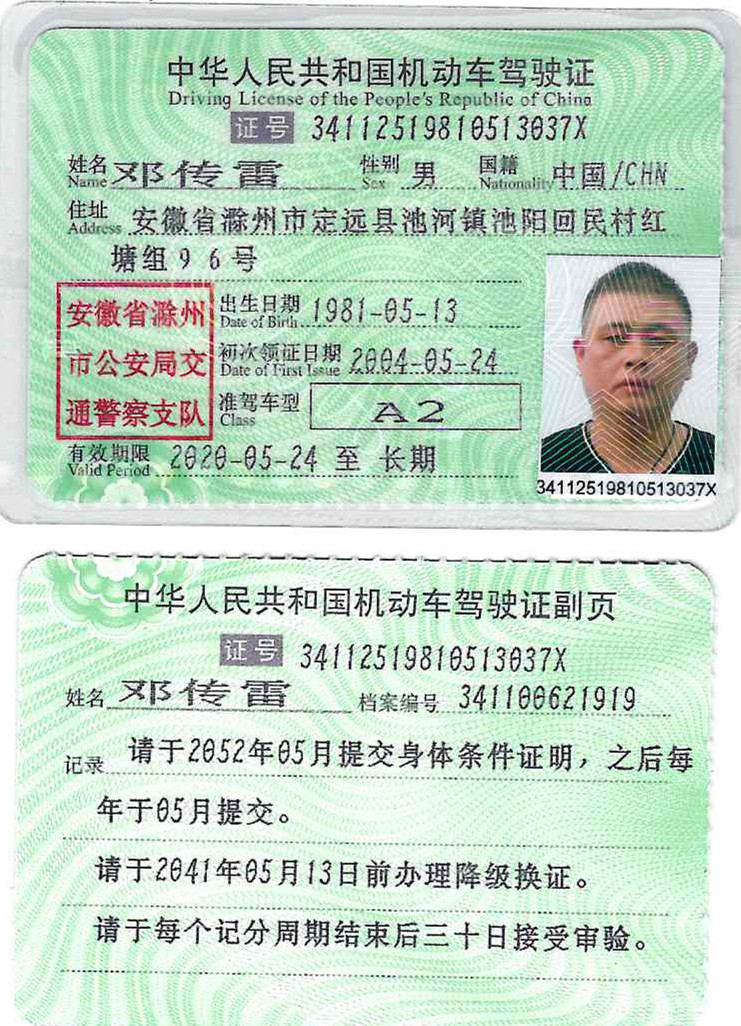 中华人民共和国机动车驾驶证
Driving License of the People's Republic of China
证号 34112519810513037X
姓名 邓传雷 性别 男 国籍 中国/CHN
Name Sex Nationality
住址 安徽省滁州市定远县池河镇池阳回民村红
Address
塘组96号
安徽省滁州
市公安局交
通警察支队
出生日期 1981-05-13
Date of Birth
初次领证日期 2004-05-24
Date of First Issue
准驾车型 A2
Class
有效期限 2020-05-24 至 长期
Valid Period
34112519810513037X
中华人民共和国机动车驾驶证副页
证号 34112519810513037X
姓名 邓传雷 档案编号 341100621919
记录 请于2052年05月提交身体条件证明，之后每
年于05月提交。
请于2041年05月13日前办理降级换证。
请于每个记分周期结束后三十日接受审验。